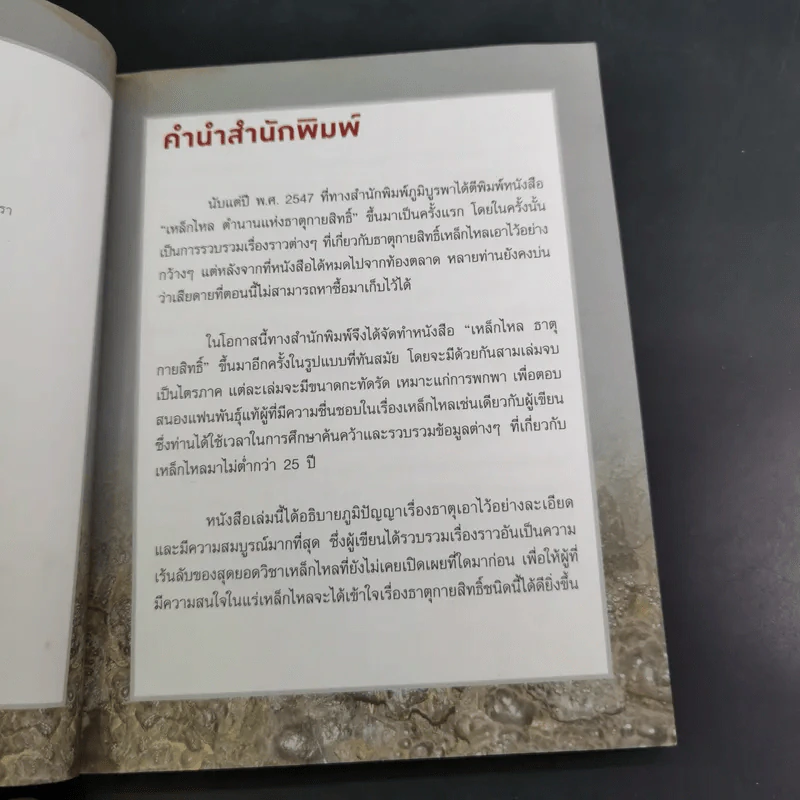 รา
คำนำสำนักพิมพ์
นับแต่ปี พ.ศ. 2547 ที่ทางสำนักพิมพ์ภูมิบูรพาได้ตีพิมพ์หนังสือ
“เหล็กไหล ตำนานแห่งธาตุกายสิทธิ์” ขึ้นมาเป็นครั้งแรก โดยในครั้งนั้น
เป็นการรวบรวมเรื่องราวต่างๆ ที่เกี่ยวกับธาตุกายสิทธิ์เหล็กไหลเอาไว้อย่าง
กว้างๆ แต่หลังจากที่หนังสือได้หมดไปจากท้องตลาด หลายท่านยังคงบ่น
ว่าเสียดายที่ตอนนี้ไม่สามารถหาซื้อมาเก็บไว้ได้
ในโอกาสนี้ทางสำนักพิมพ์จึงได้จัดทำหนังสือ “เหล็กไหล ธาตุ
กายสิทธิ์” ขึ้นมาอีกครั้งในรูปแบบที่ทันสมัย โดยจะมีด้วยกันสามเล่มจบ
เป็นไตรภาค แต่ละเล่มจะมีขนาดกะทัดรัด เหมาะแก่การพกพา เพื่อตอบ
สนองแฟนพันธุ์แท้ผู้ที่มีความชื่นชอบในเรื่องเหล็กไหลเช่นเดียวกับผู้เขียน
ซึ่งท่านได้ใช้เวลาในการศึกษาค้นคว้าและรวบรวมข้อมูลต่างๆ ที่เกี่ยวกับ
เหล็กไหลมาไม่ต่ำกว่า 25 ปี
หนังสือเล่มนี้ได้อธิบายภูมิปัญญาเรื่องธาตุเอาไว้อย่างละเอียด
และมีความสมบูรณ์มากที่สุด ซึ่งผู้เขียนได้รวบรวมเรื่องราวอันเป็นความ
เร้นลับของสุดยอดวิชาเหล็กไหลที่ยังไม่เคยเปิดเผยที่ใดมาก่อน เพื่อให้ผู้ที่
มีความสนใจในแร่เหล็กไหลจะได้เข้าใจเรื่องธาตุกายสิทธิ์ชนิดนี้ได้ดียิ่งขึ้น